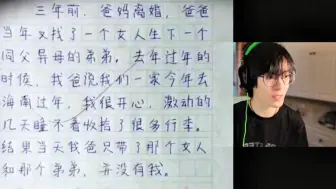 三年前，爸妈离婚，爸爸
当年又找了一个女人生下一个
同父异母的弟弟。去年过年的
时候，我爸说我们一家今年去
海南过年，我很开心，激动的
几天睡不着收拾了很多行李。
结果当天我爸只带了那个女人
和那个弟弟，并没有我。